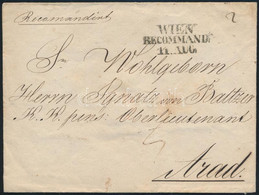 Recomandirt
WIEN
RECOMMANDI
11. AUG.
Sr Wohlgeborn
Herrn Ignatz von Baltzer
K. K. pens: Oberlieutenant
Arad.